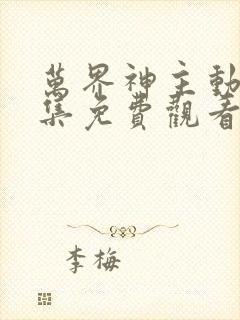 萬界神主動
集免費觀看
李梅